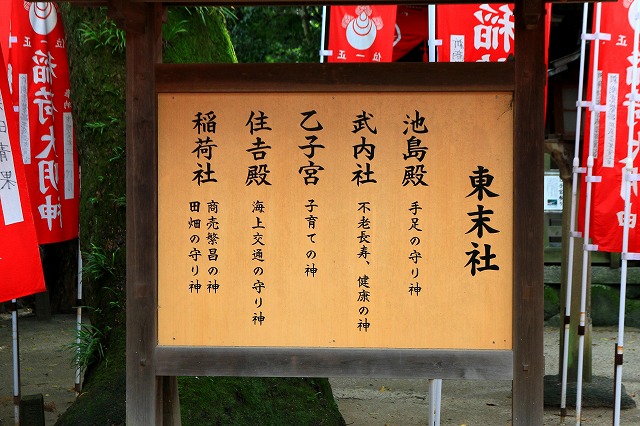 東末社
池島殿
手足の守り神
武内社
不老長寿、健康の神
乙子宮
子育ての神
住吉殿
海上交通の守り神
稲荷社
商売繁昌の神
田畑の守り神
稲荷大明神
正一位
稲荷
正一位